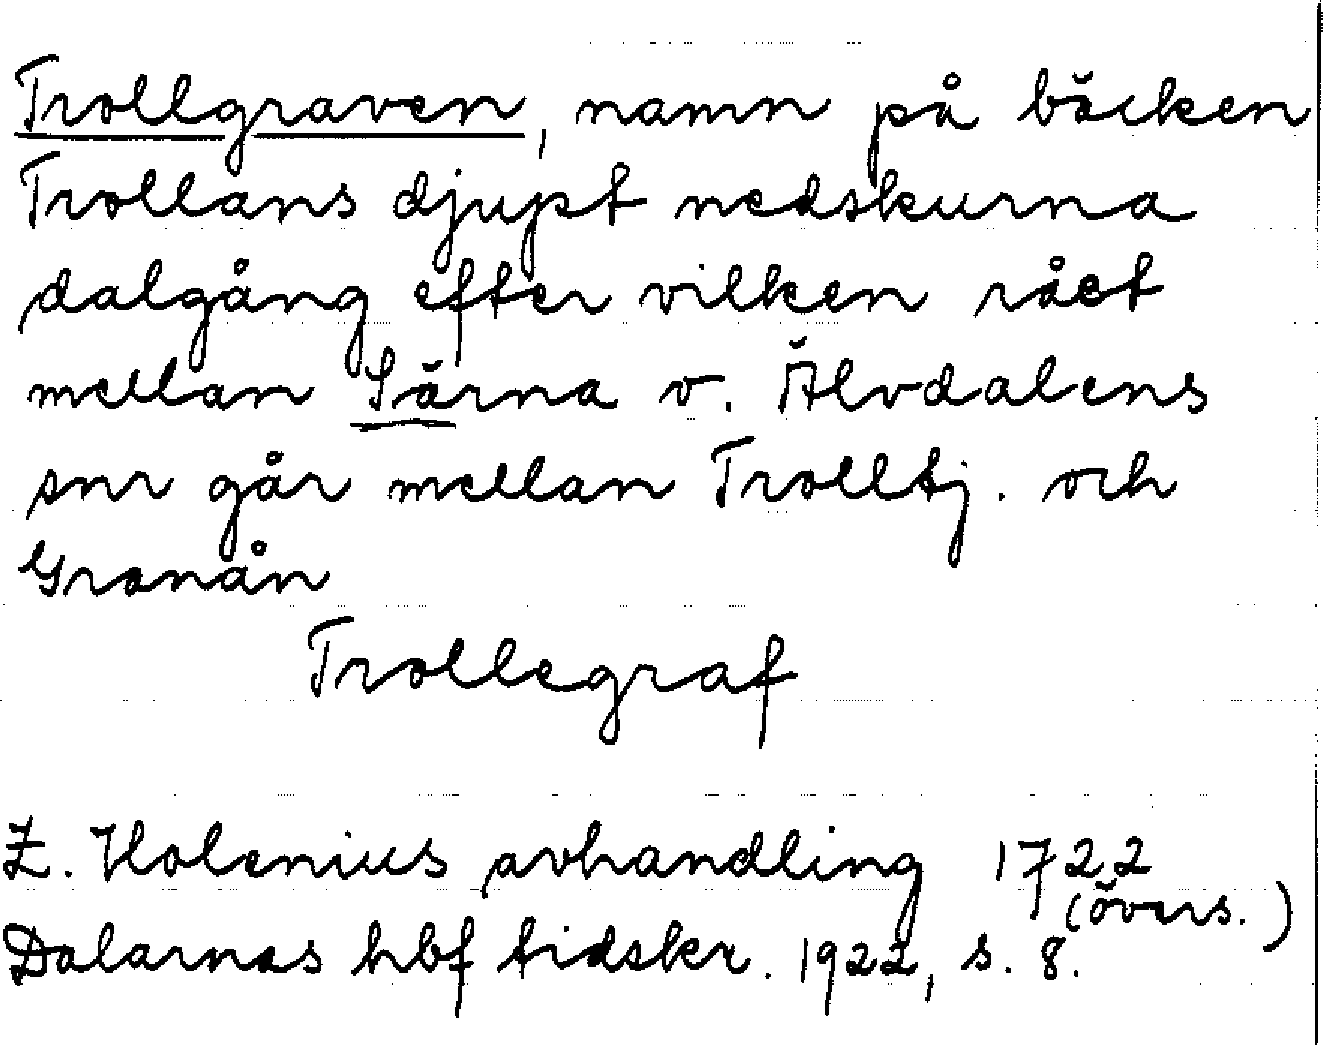 Trollgraven, namn på bäcken
Trollans djupt nedskurna
dalgång efter vilken rået
mellan Särna o. Älvdalens
snr går mellan Trolltj. och
Granån
Trollegraf
Z. Holenius avhandling 1722
(övers.)
Dalarnas hbf tidskr. 1922, s. 8.